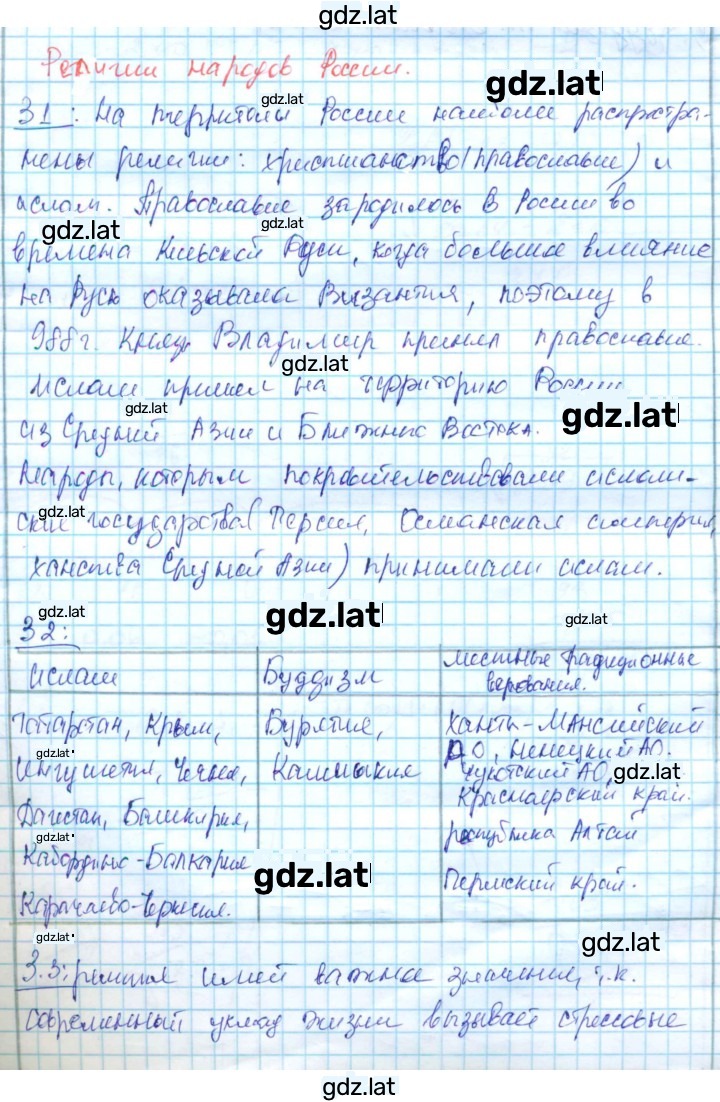 gdz.lat
Религии народов России.
gdz.lat
gdz.lat
31: На территоры России наиболее распростра-
нены религии: христианство(православие) и
ислам. Православие зародилось в России во
gdz.lat
gdz.lat
времена Киевской Руси, когда большое влияние
на Русь оказывала Византия, поэтому в
988г. Князь Владимир принял православие.
gdz.lat
Ислам пришел на территорию России
gdz.lat
gdz.lat
из Средней Азии и Ближнего Востока.
Народы, которым покровительствовали ислам-
gdz.lat
ские государства(Персия, Османская империя,
ханства Средней Азии) принимали ислам.
gdz.lat
gdz.lat
32:
Ислам
Буддизм
местные традиционные
верования.
Татарстан, Крым,
Бурятия,
Ханты-Мансийский
АО, Ненецкий АО.
gdz.lat
Ингушетия, Чечня,
Калмыкия
Чукотский АО,
gdz.lat
Красноярский край.
Дагестан, Башкирия,
республика Алтай
gdz.lat
Кабардино-Балкария
gdz.lat
Пермский край.
gdz.lat
Карачаево-Черкесия.
gdz.lat
gdz.lat
3.3: религия имей важное значение, т.к.
современный уклад жизни вызывает стрессовые
gdz.lat